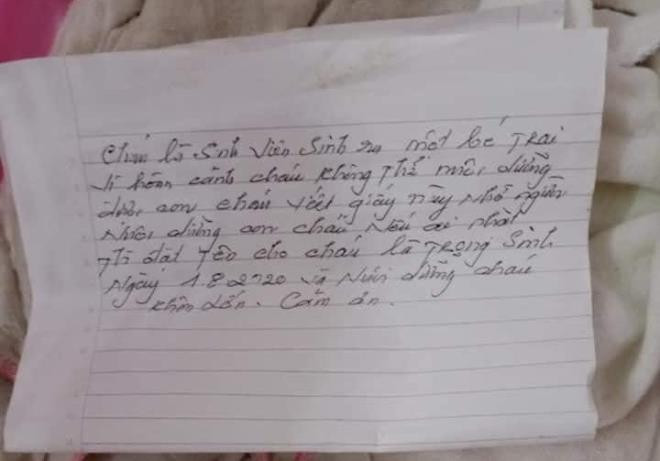 Cháu là Sinh Viên Sinh ra một bé Trai
Vì hoàn cảnh cháu không Thể nuôi dưỡng
được con cháu viết giấy này nhờ người
nuôi dưỡng con cháu Nếu ai nhặt
Thì đặt Tên cho cháu là Trọng Sinh
Ngày 1.8.2020 và Nuôi dưỡng cháu
khôn lớn. Cảm ơn.